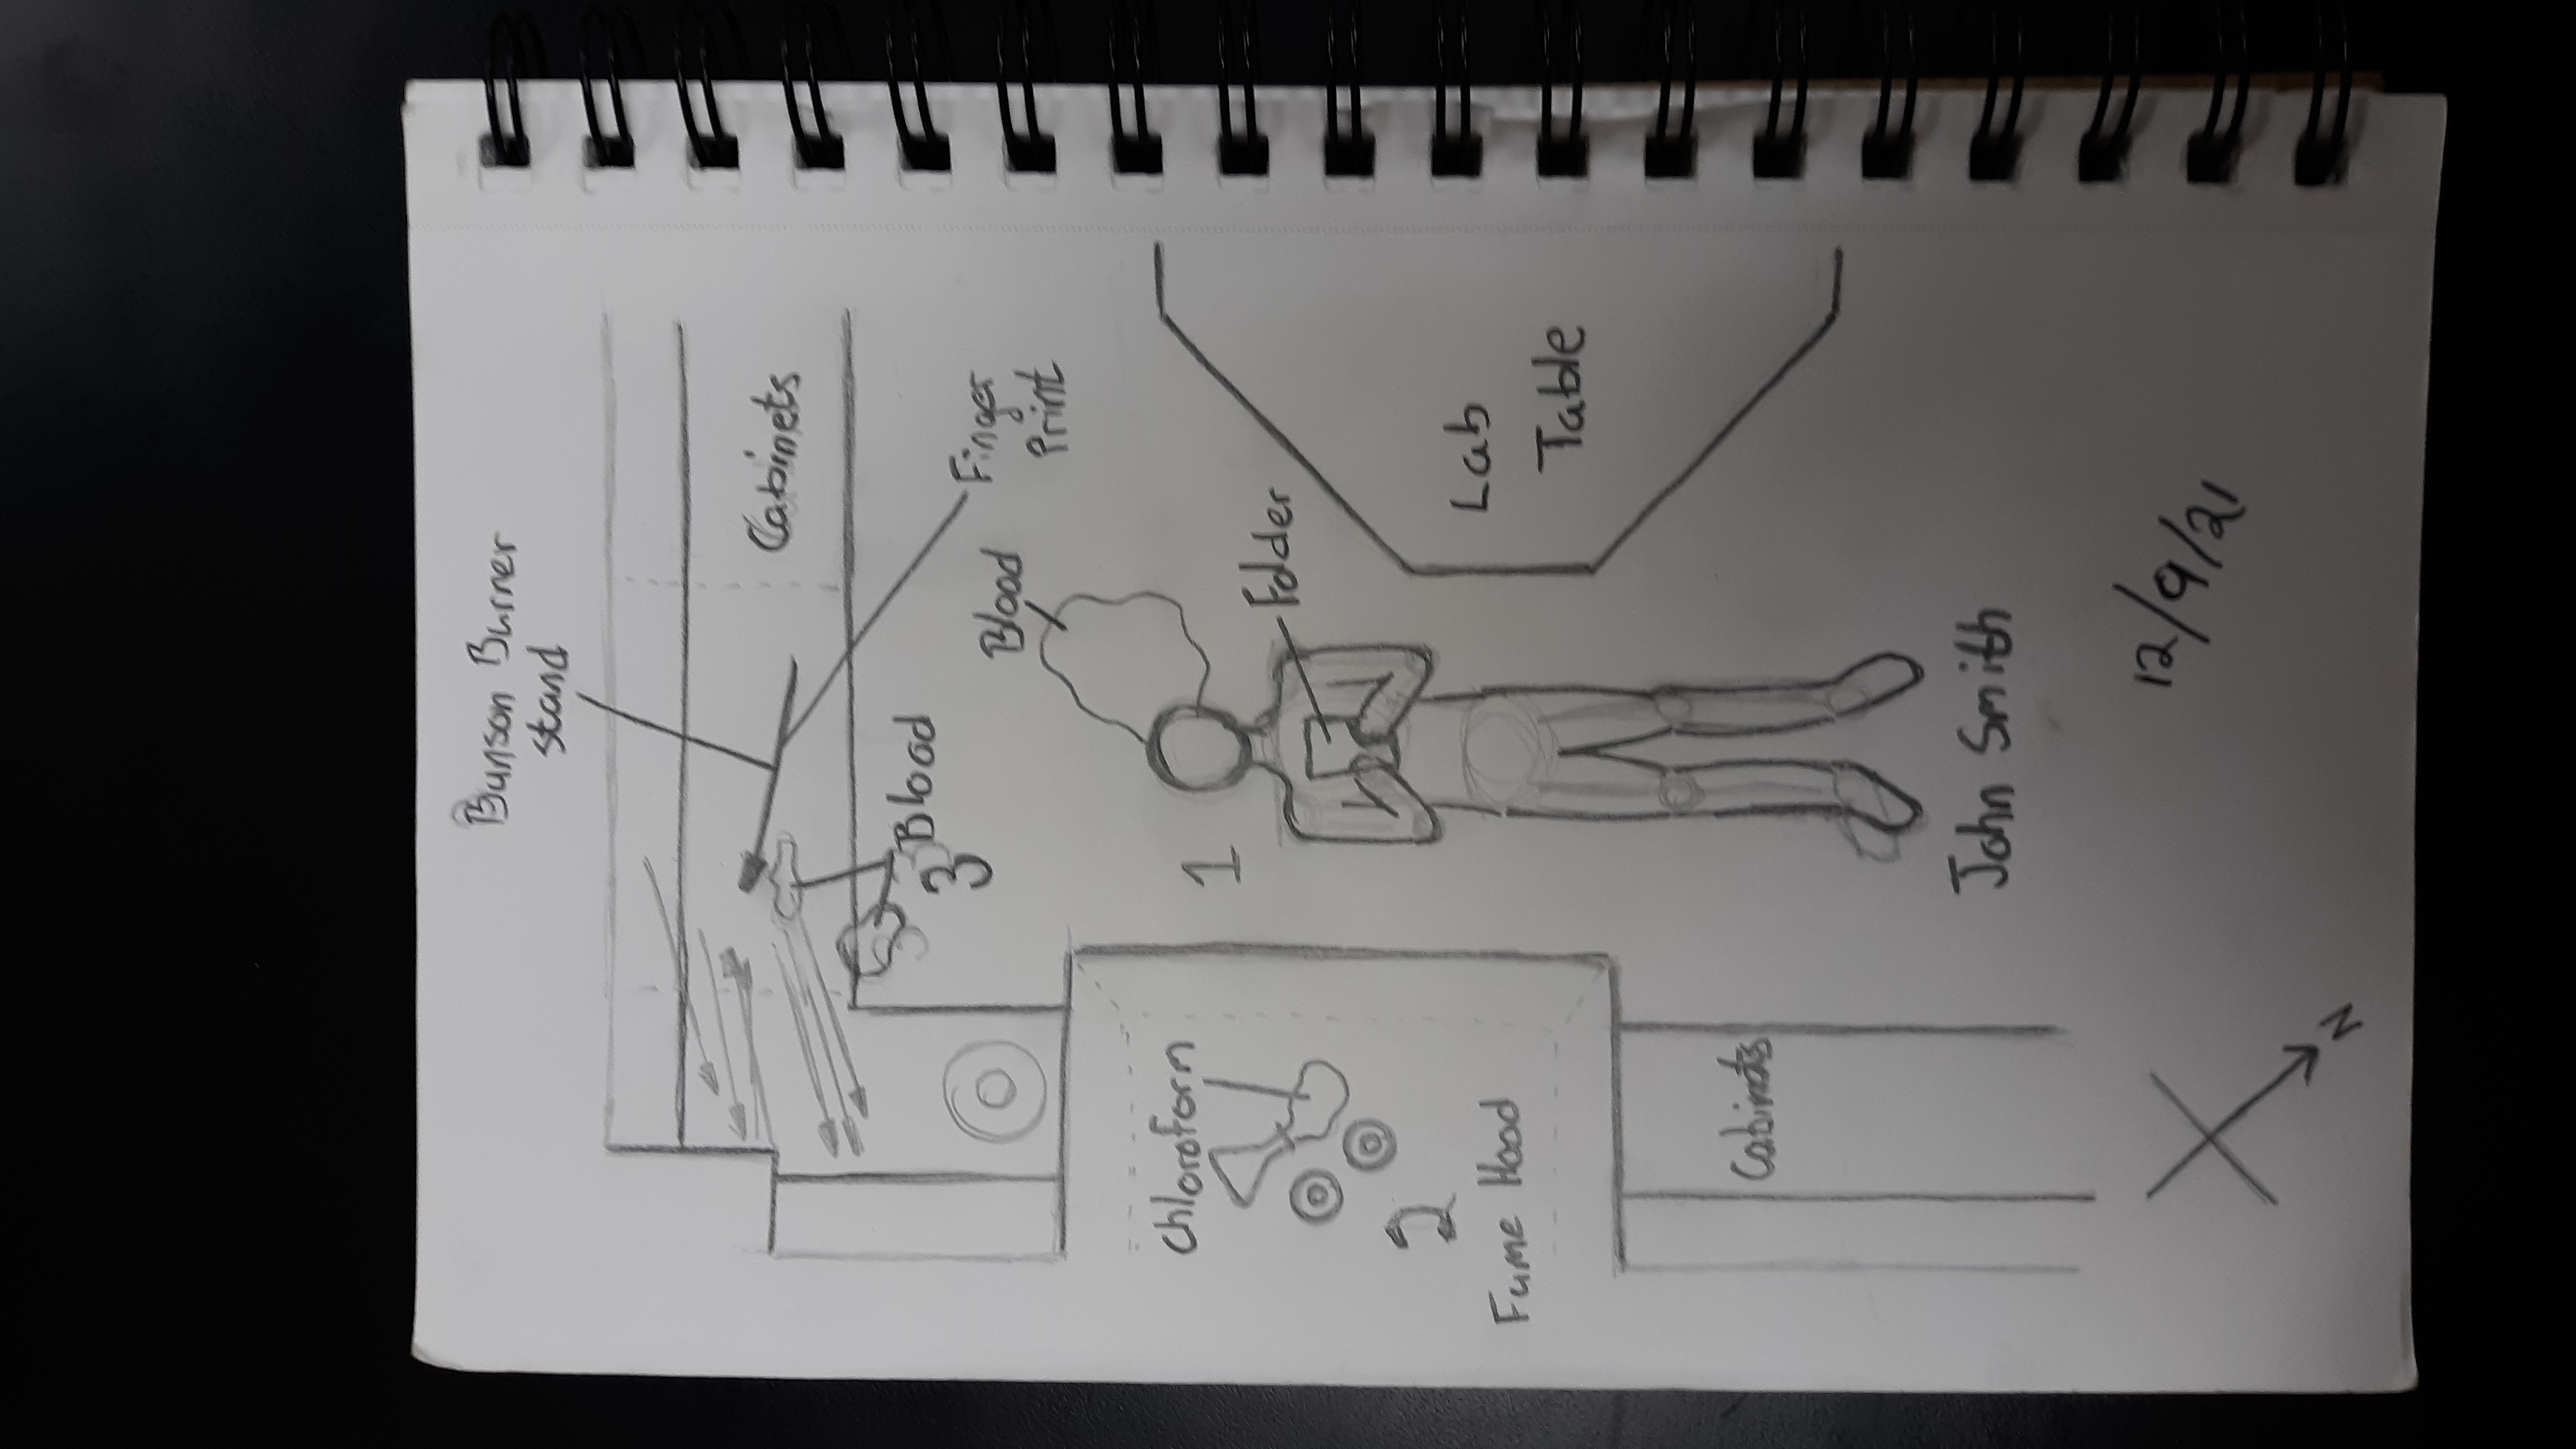 Bunson Burner
stand
Cabinets
Blood
3
Finger
Print
Blood
Chloroform
1
Folder
2
Fume Hood
Lab
Table
Cabinets
John Smith
12/9/21
N